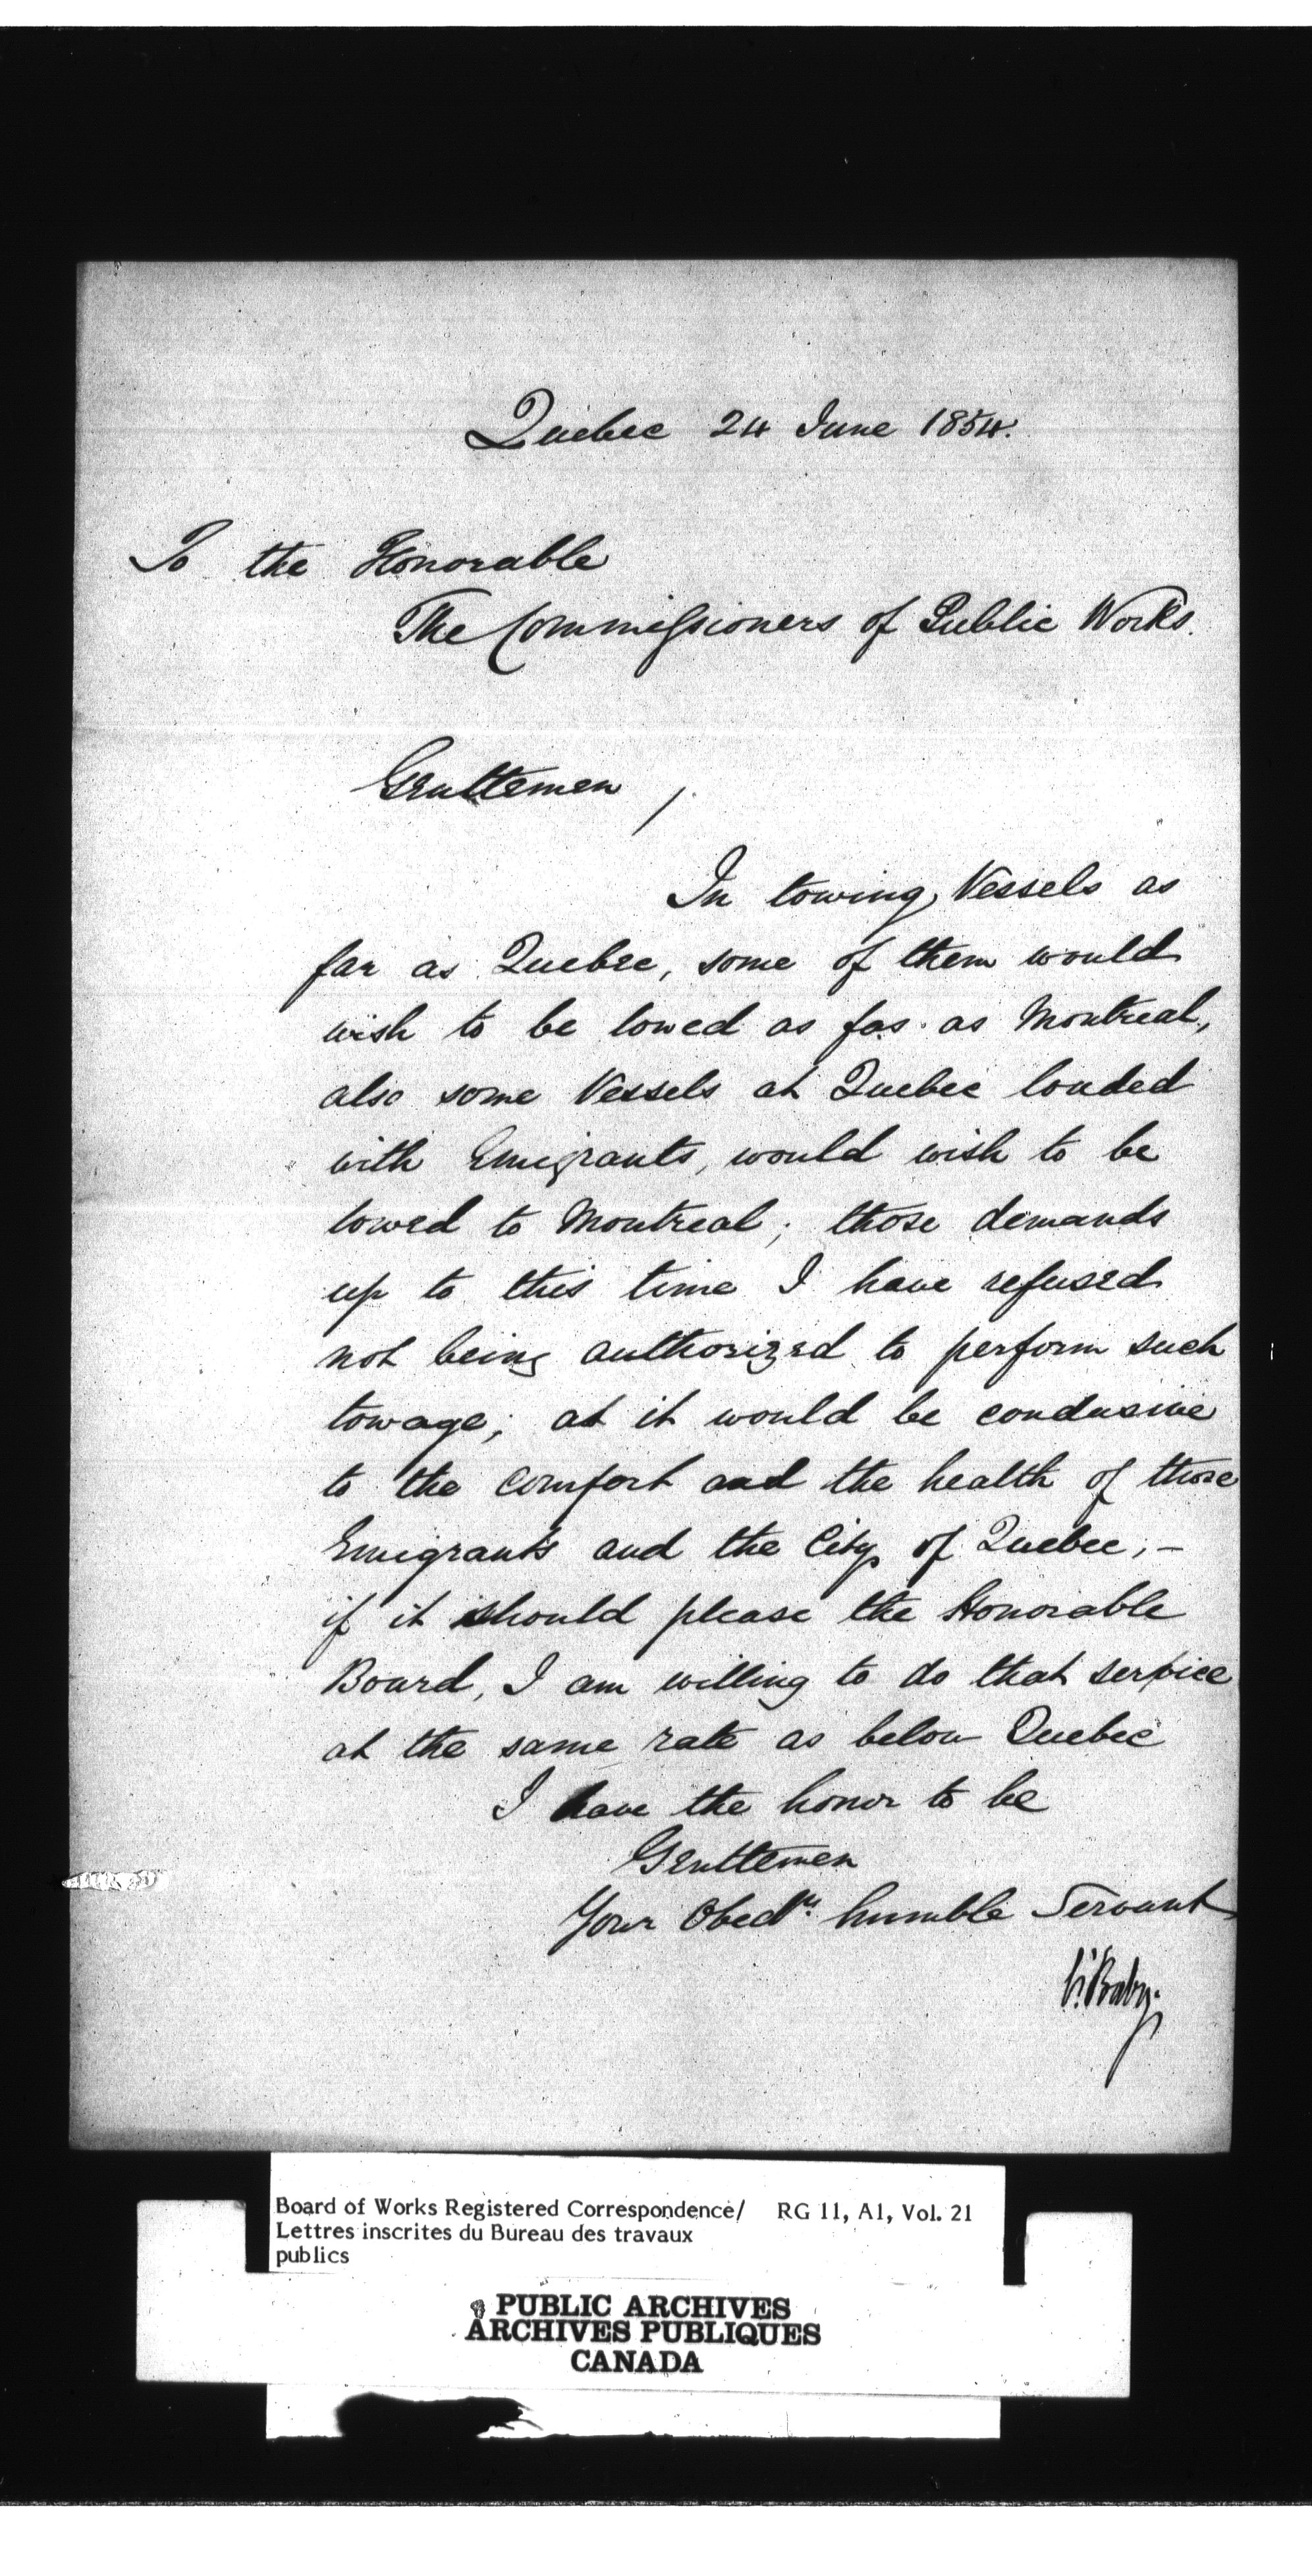 Quebec 24 June 1854.
To the Honorable
The Commissioners of Public Works.
Gentlemen,
In towing Vessels as
far as Quebec, some of them would
wish to be towed as far as Montreal,
also some Vessels at Quebec loaded
with Emigrants, would wish to be
towed to Montreal; those demands
up to this time I have refused
not being authorized to perform such
towage; as it would be condusive
to the comfort and the health of those
Emigrants and the City of Quebec, –
if it should please the Honorable
Board, I am willing to do that service
at the same rate as below Quebec
I have the honor to be
Gentlemen
Your humble Servant
Baby
Board of Works Registered Correspondence/ RG 11, A1, Vol. 21
Lettres inscrites du Bureau des travaux
publics
PUBLIC ARCHIVES
ARCHIVES PUBLIQUES
CANADA